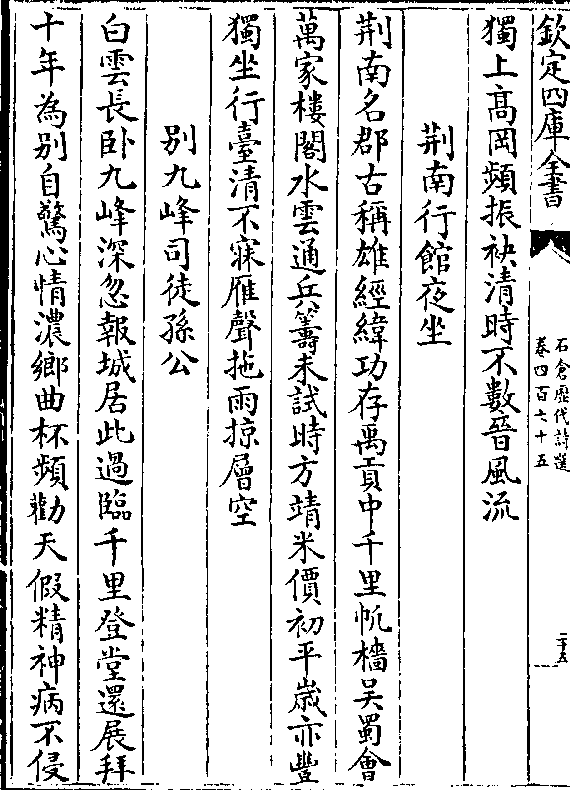 欽定四庫全書
石倉歷代詩選
卷四百七十五
二十五
獨上髙岡頻振袂清時不數晉風流
荆南行館夜坐
荆南名郡古稱雄經緯功存禹貢中千里帆檣吴蜀會
萬家樓閣水雲通兵籌未試時方靖米價初平嵗亦豐
獨坐行臺清不寐雁聲拖雨掠層空
别九峰司徒孫公
白雲長卧九峰深忽報城居此過臨千里登堂還展拜
十年為别自驚心情濃鄉曲杯頻勸天假精神病不侵